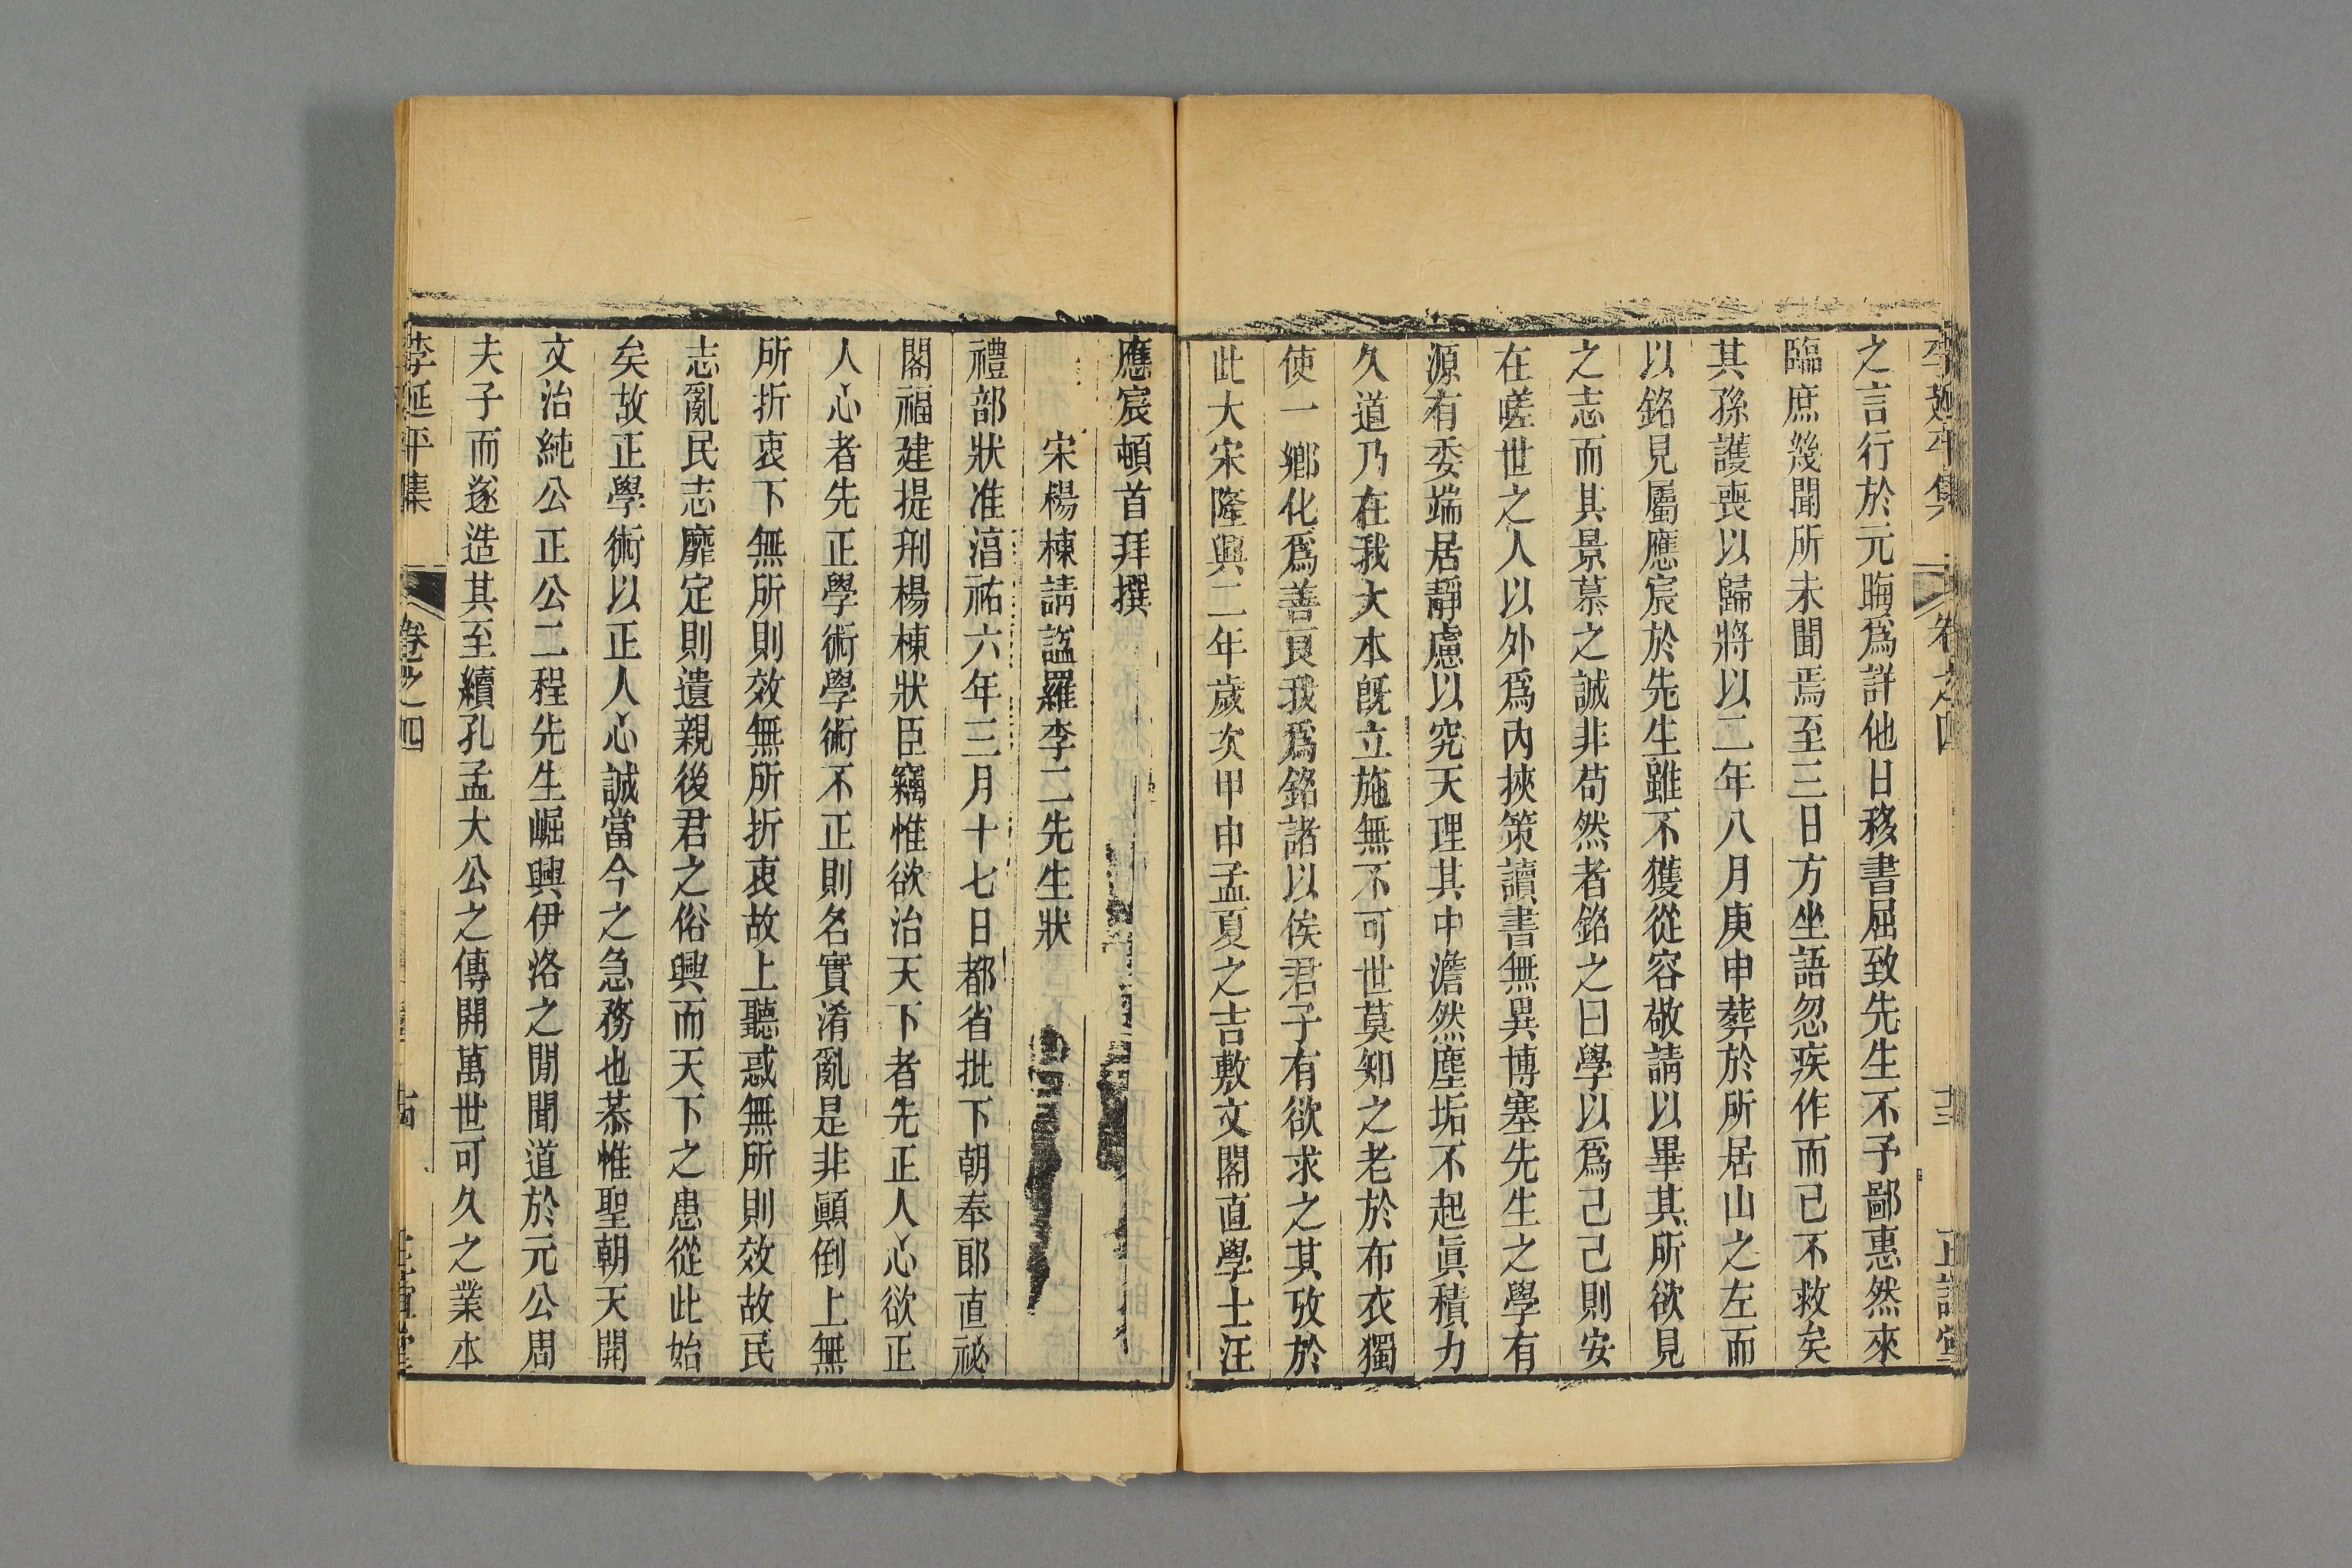 李延平集 卷之四 十三 正誼堂
之言行於元晦爲詳他日移書屈致先生不予鄙惠然來
臨庶幾聞所未聞焉至三日方坐語忽疾作而已不救矣
其孫護喪以歸將以二年八月庚申葬於所居山之左而
以銘見屬應宸於先生雖不獲從容敬請以畢其所欲見
之志而其景慕之誠非苟然者銘之曰學以爲己己則安
在嗟世之人以外爲內挾策讀書無異博塞先生之學有
源有委端居靜慮以究天理其中澹然塵垢不起眞積力
久道乃在我大本旣立施無不可世莫知之老於布衣獨
使一鄉化爲善良我爲銘諸以俟君子有欲求之其攷於
此大宋隆興二年歲次甲申孟夏之吉敷文閣直學士汪
應宸頓首拜撰
宋楊棟請諡羅李二先生狀
禮部狀准湻祐六年三月十七日都省批下朝奉郎直祕
閣福建提刑楊棟狀臣竊惟欲治天下者先正人心欲正
人心者先正學術學術不正則名實淆亂是非顚倒上無
所折衷下無所則效無所折衷故上聽惑無所則效故民
志亂民志靡定則遺親後君之俗興而天下之患從此始
矣故正學術以正人心誠當今之急務也恭惟聖朝天開
文治純公正公二程先生崛興伊洛之閒聞道於元公周
夫子而遂造其至續孔孟大公之傳開萬世可久之業本
李延平集 卷之四 十四 正誼堂